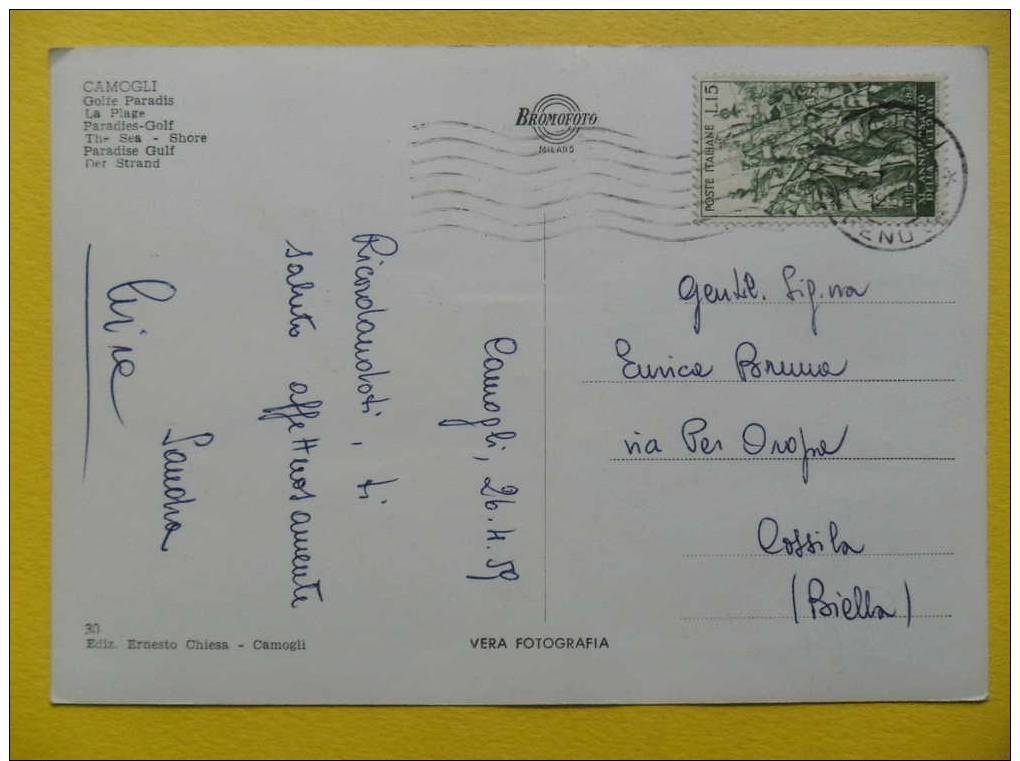 CAMOGLI
Golfe Paradis
La Plage
Paradies-Golf
The Sea - Shore
Paradise Gulf
Der Strand
BROMOFOTO
MILANO
POSTE ITALIANE L.15
Camogli, 26.4.59
Ricordandoti, ti
saluto affettuosamente
Sandra
Gentil. Sig.na
Enrica Bruna
via Per Oropa
Cossila
(Biella)
30.
Ediz. Ernesto Chiesa - Camogli
VERA FOTOGRAFIA